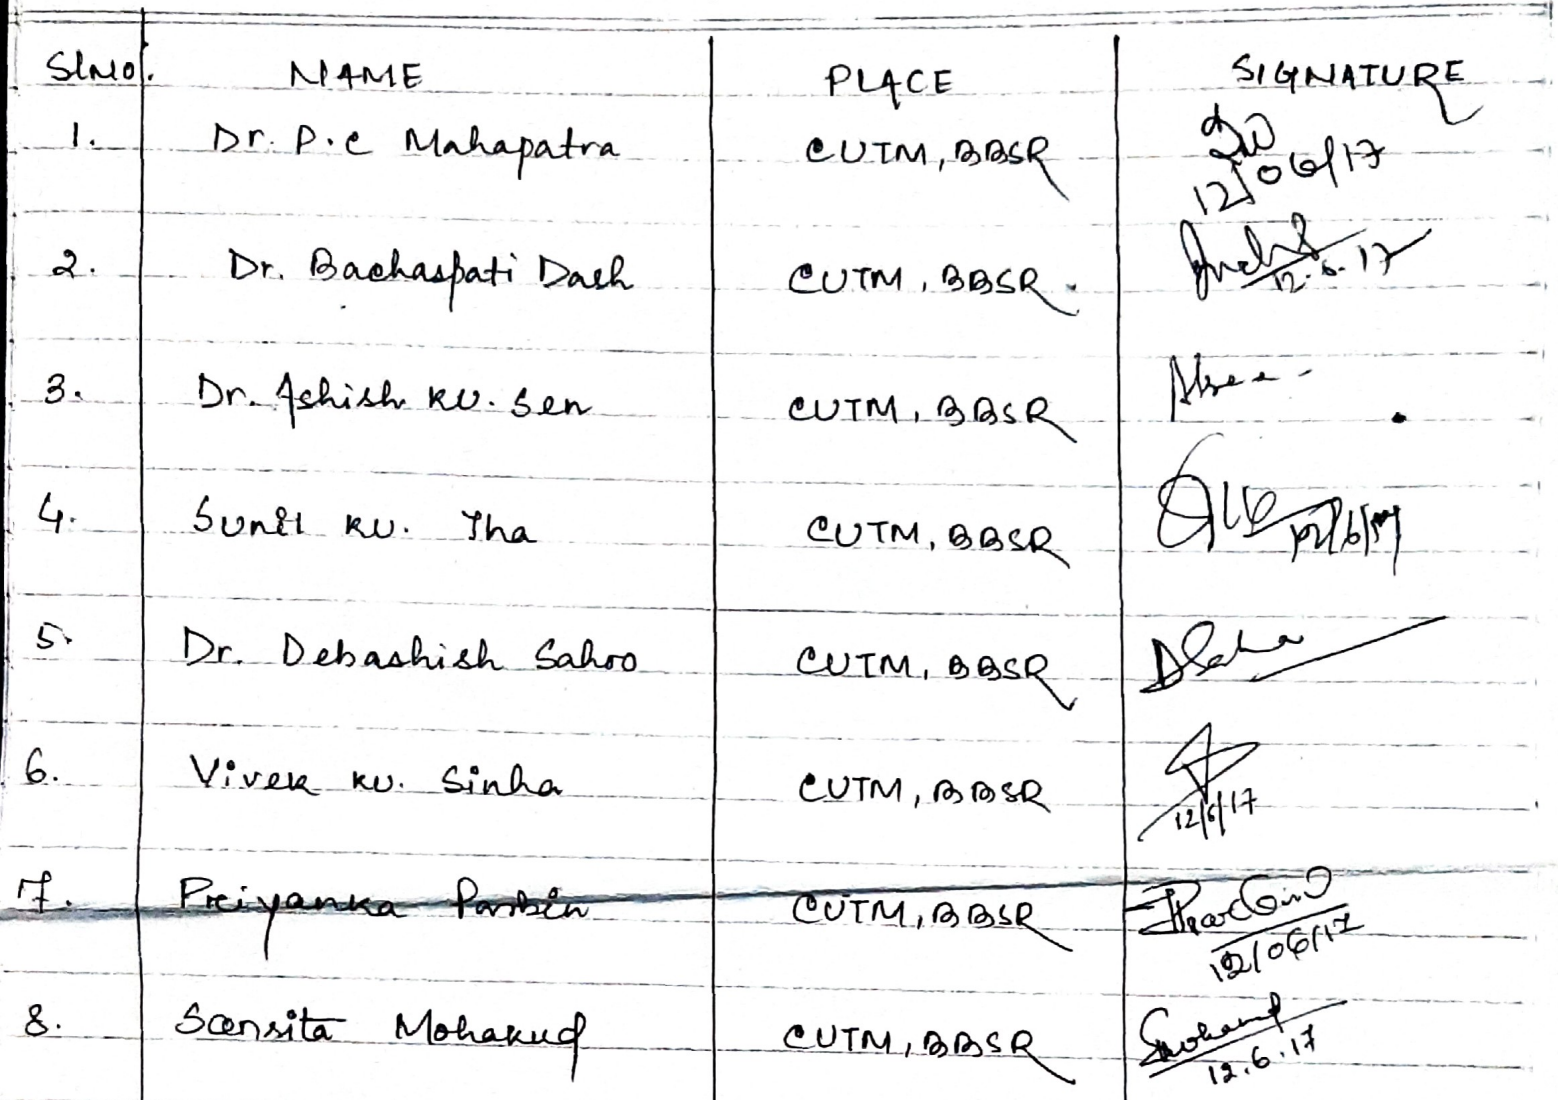 Sl.No. NAME PLACE SIGNATURE
1. Dr. P.C Mahapatra CUTM, BBSR 12/06/17
2. Dr. Bachaspati Dash CUTM, BBSR. 12.6.17
3. Dr. Ashish KU. Sen CUTM, BBSR
4. Sunil KU. Jha CUTM, BBSR 12/6/17
5. Dr. Debashish Sahoo CUTM, BBSR
6. Vivek KU. Sinha CUTM, BBSR 12/6/17
7. Preiyanka Parbin CUTM, BBSR 12/06/17
8. Sansita Mohakud CUTM, BBSR 12.6.17